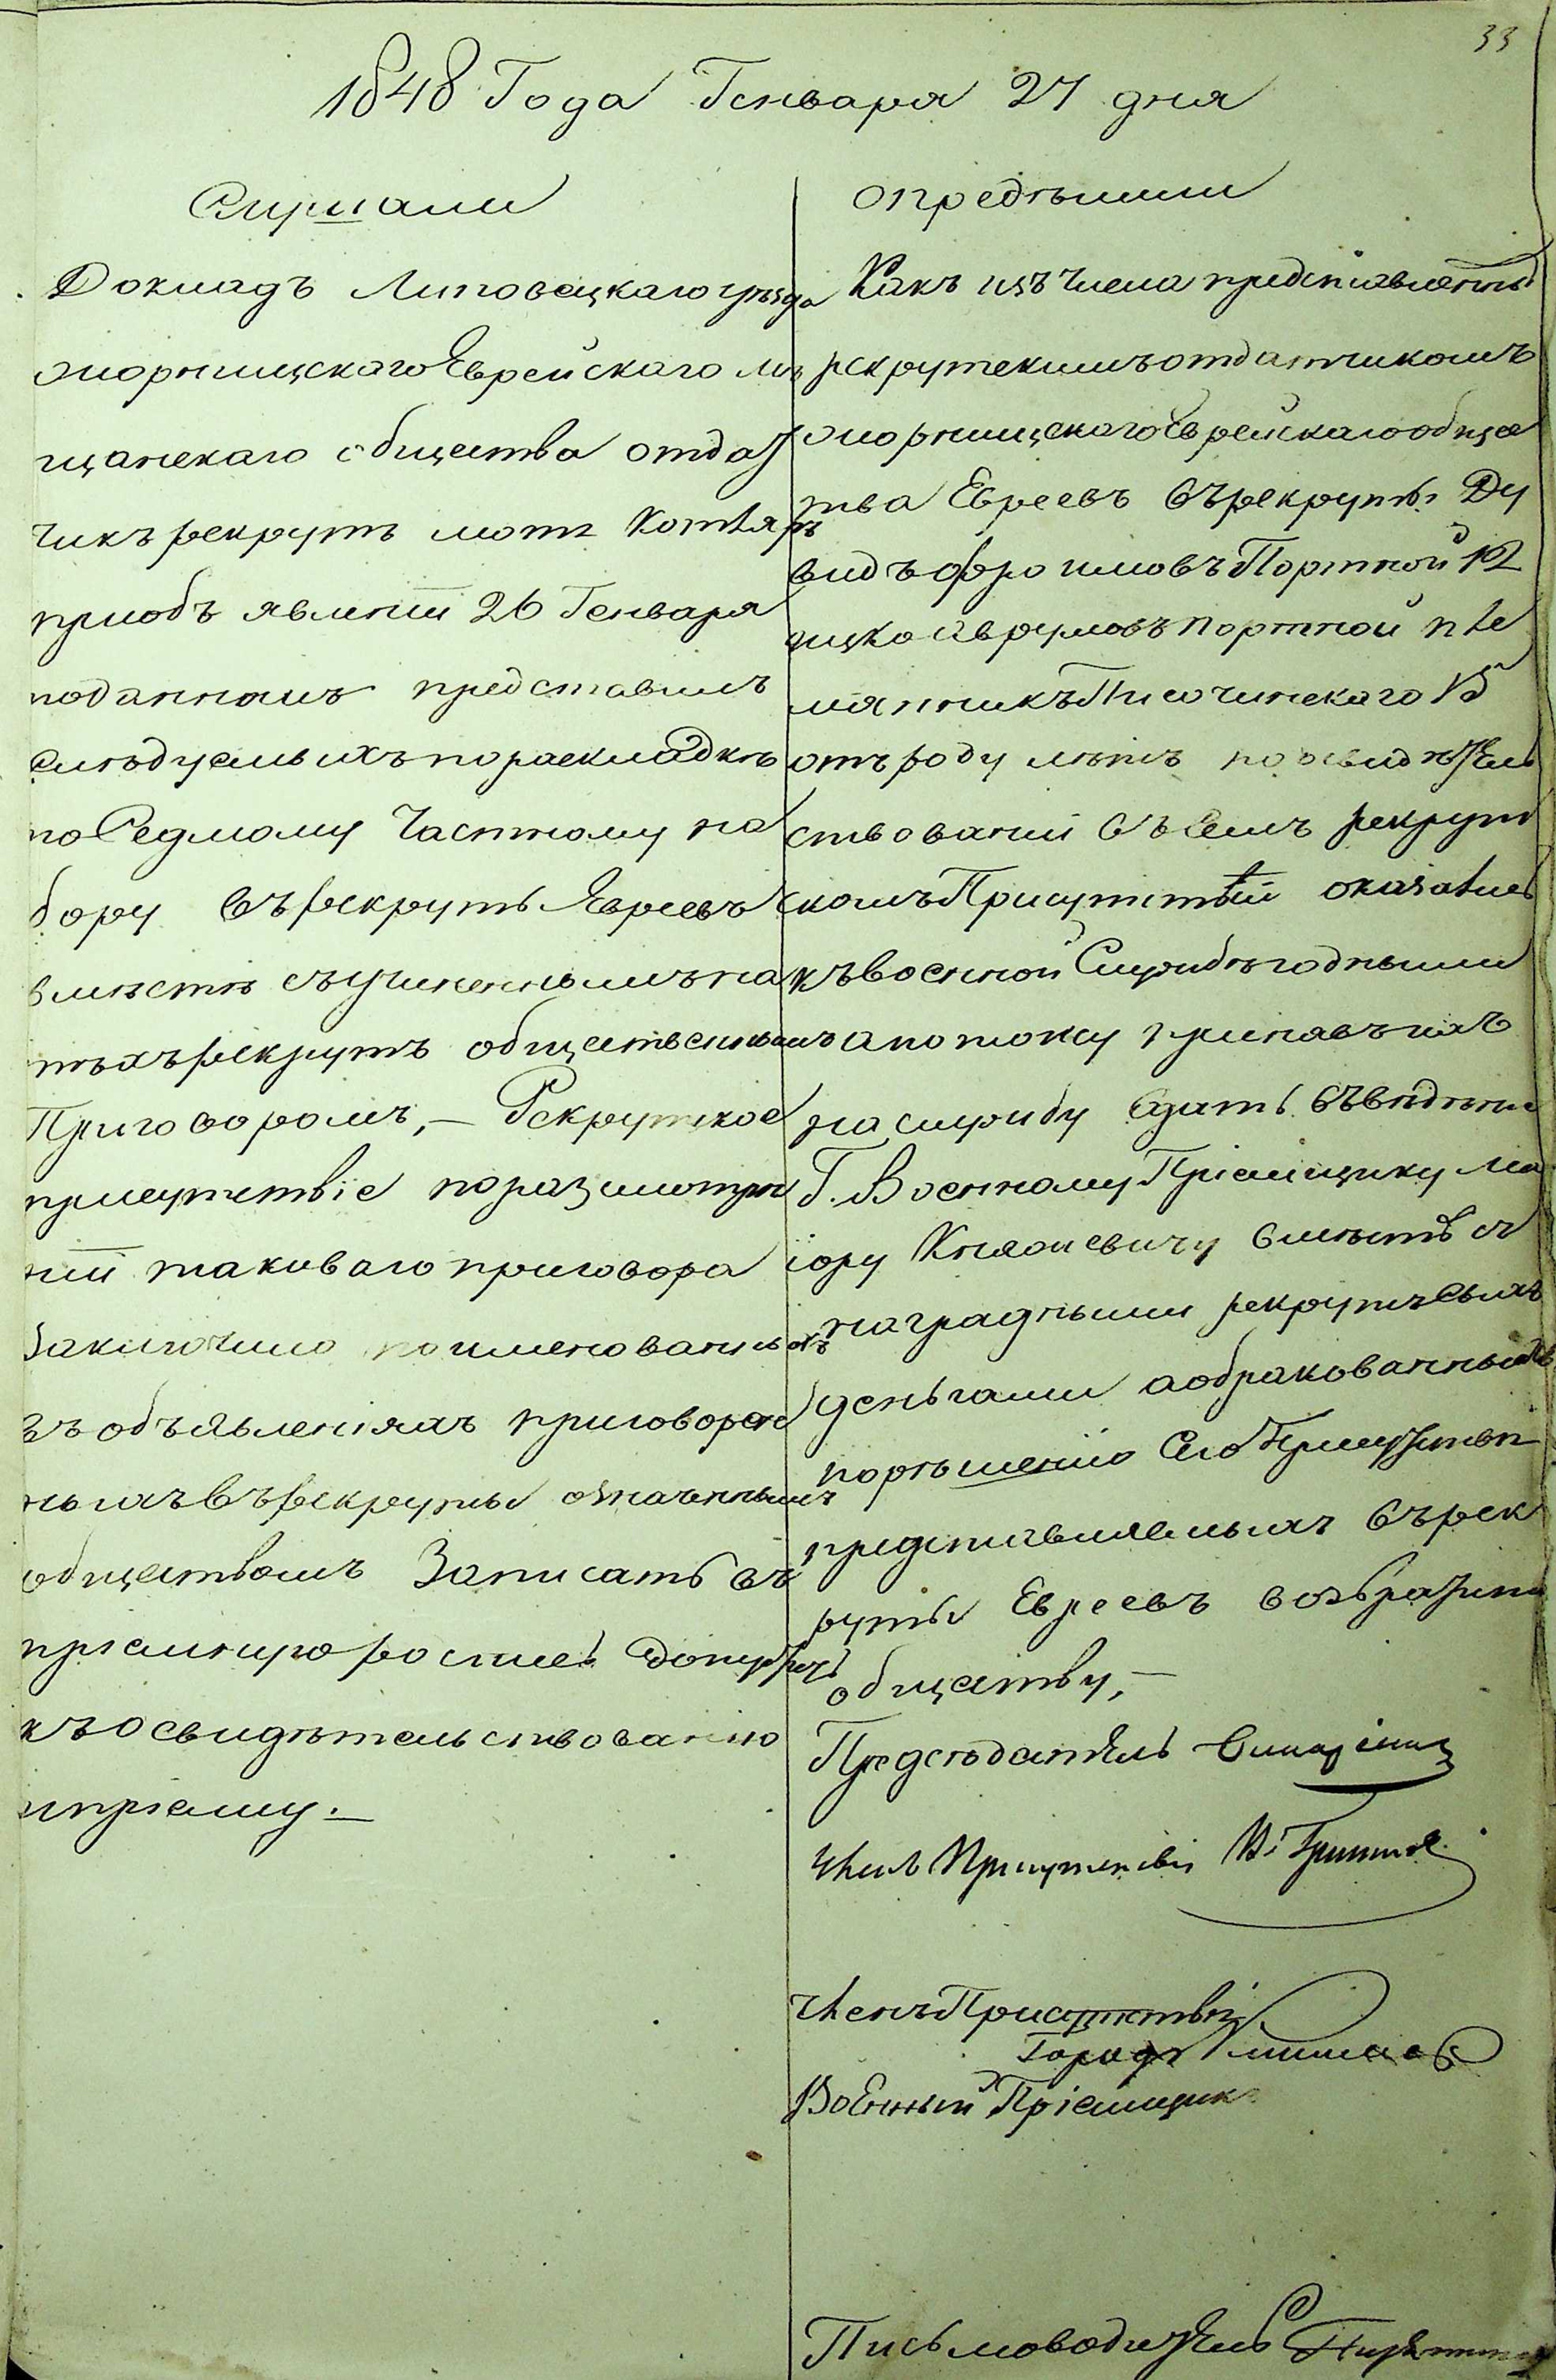 33
1848 Года Генваря 27 дня
Слушали
Докладъ Липовецкаго уѣзда
Жорнищскаго Еврейскаго мѣ
щанскаго общества отдат
чикъ рекрутъ Мотя Котляръ
приобъявленіи 26 Генваря
поданномъ представилъ
слѣдуемыхъ пораскладкѣ
по Седмому Частному на
бору въ рекруты Евреевъ
вмѣстѣ съучиненнымъ на
тѣхъ рекрутъ общественнымъ
Приговоромъ,— Рекрутское
присутствіе поразсмотре
ніи таковаго приговора
Заключило поименованныхъ
въ объявленіяхъ приговорен
ныхъ въ рекруты означеннымъ
обществомъ Записать въ
пріемную роспись допустить
къ освидѣтельствованію
ипріему.—
опредѣлили
Какъ изъ числа представленныхъ
рекрутскимъ отдатчикомъ
Жорнищскаго Еврейскаго общес
тва Евреевъ въ рекруты Ду
видъ Фроимовъ Портной 12
Ицко Аврумовъ Портной пле
мянникъ Писочинскаго 15
отъ роду лѣтъ по освидѣтель
ствованіи въ семъ рекрут
скомъ Присутствіи оказались
къ военной Службѣ годными
а потому принявъ ихъ
на службу Сдать въ вѣдѣніе
Г. Военному Пріемщику Ма
іору Княжевичу вмѣстѣ съ
наградными рекрутъ сихъ
деньгами а обракованныхъ
по рѣшенію Сего Присутствія
представляемыхъ въ рек
руты Евреевъ возвратить
обществу,—
Предсѣдатель
Членъ Присутствія
Членъ Присутствія
Военный Пріемщикъ
Письмоводитель